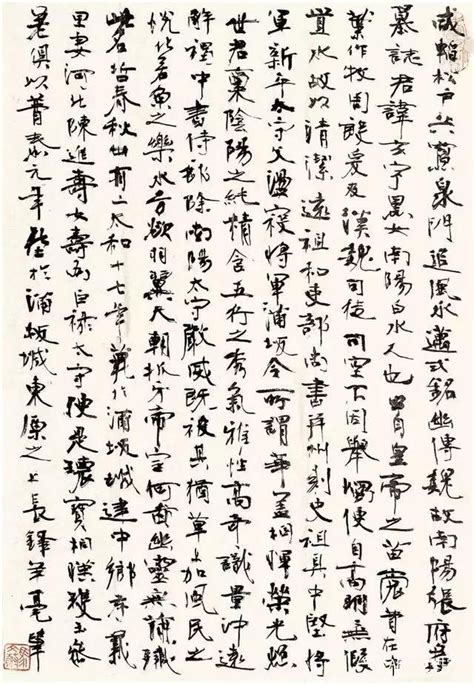 咸韜松戶共寢泉門追風永邁式銘幽傳魏故南陽張府君
墓誌君諱玄字黑女南陽白水人也出自皇帝之苗裔昔在中
葉作牧周殷爰及漢魏司徒司空不因舉燭便自高明無假
置水故以清潔遠祖和吏部尚書并州刺史祖具中堅將
軍新平太守父盪寇將軍蒲坂令所謂華蓋相暉榮光照
世君稟陰陽之純精含五行之秀氣雅性高奇識量沖遠
解褐中書侍郎除南陽太守嚴威既被其猶草上加風民之
悅化若魚之樂水方欲羽翼天朝抓牙帝室何圖幽靈無簡殲
此名哲春秋卅有二太和十七年薨於蒲坂城建中鄉孝義
里妻河北陳進壽女壽為巨祿太守便是瓌寶相暎瓊玉參
差俱以普泰元年葬於蒲坂城東原之上長鋒羊毫筆